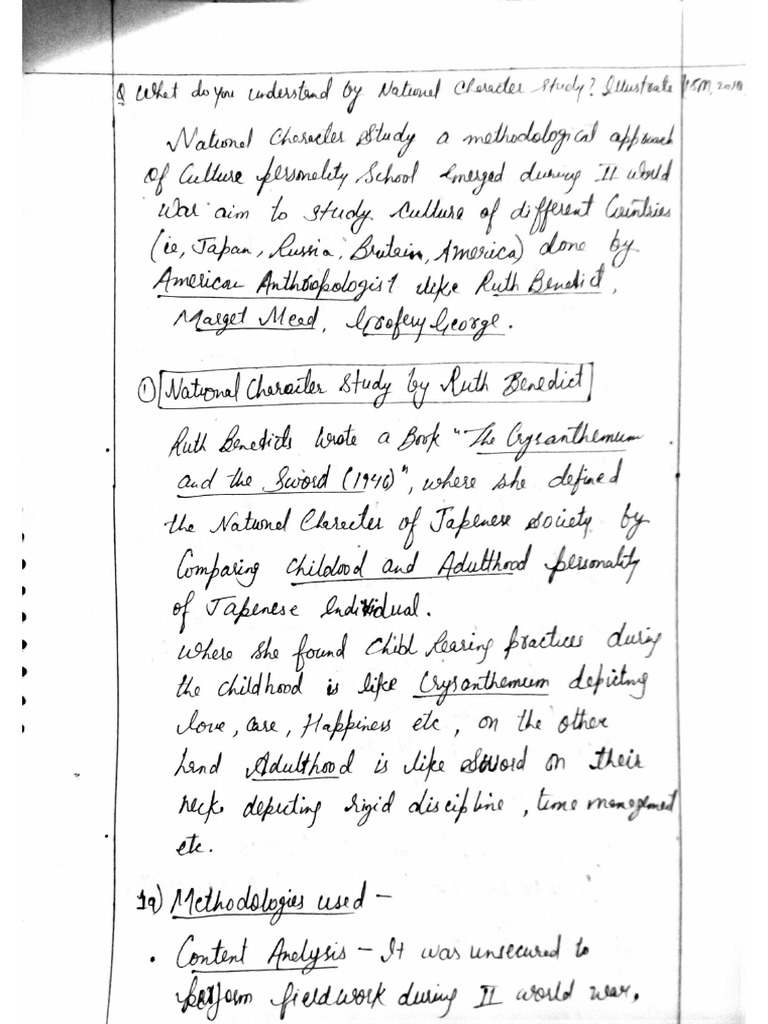 Q What do you understand by National Character Study? Illustrate 15M, 2019
National Character Study a methodological approach
of Culture personality School emerged during II world
War aim to study. Culture of different Countries
(ie, Japan, Russia, Britain, America) done by
American Anthropologist like Ruth Benedict,
Marget Mead, George.
① National Character Study by Ruth Benedict
Ruth Benedicts Wrote a Book "The Crysanthemum
and the Sword (1946)", where she defined
the National Character of Japenese society by
Comparing Childood and Adulthood personality
of Japenese Individual.
where she found Child Rearing practices during
the childhood is like Crysanthemum depicting
love, care, Happiness etc, on the other
hand Adulthood is like Sword on their
neck depicting rigid discipline, time management
etc.
1a) Methodologies used -
• Content Analysis - It was unsecured to
perform fieldwork during II world war.